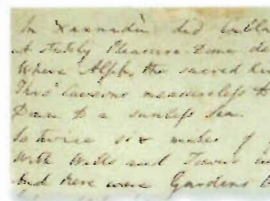 In Xannadù did Cubla
A stately Pleasure-Dome de
Where Alph, the sacred Riv
Thro' Caverns measureless to
Down to a sunless Sea.
So twice six miles of f
With Walls and Towers were
And here were Gardens b